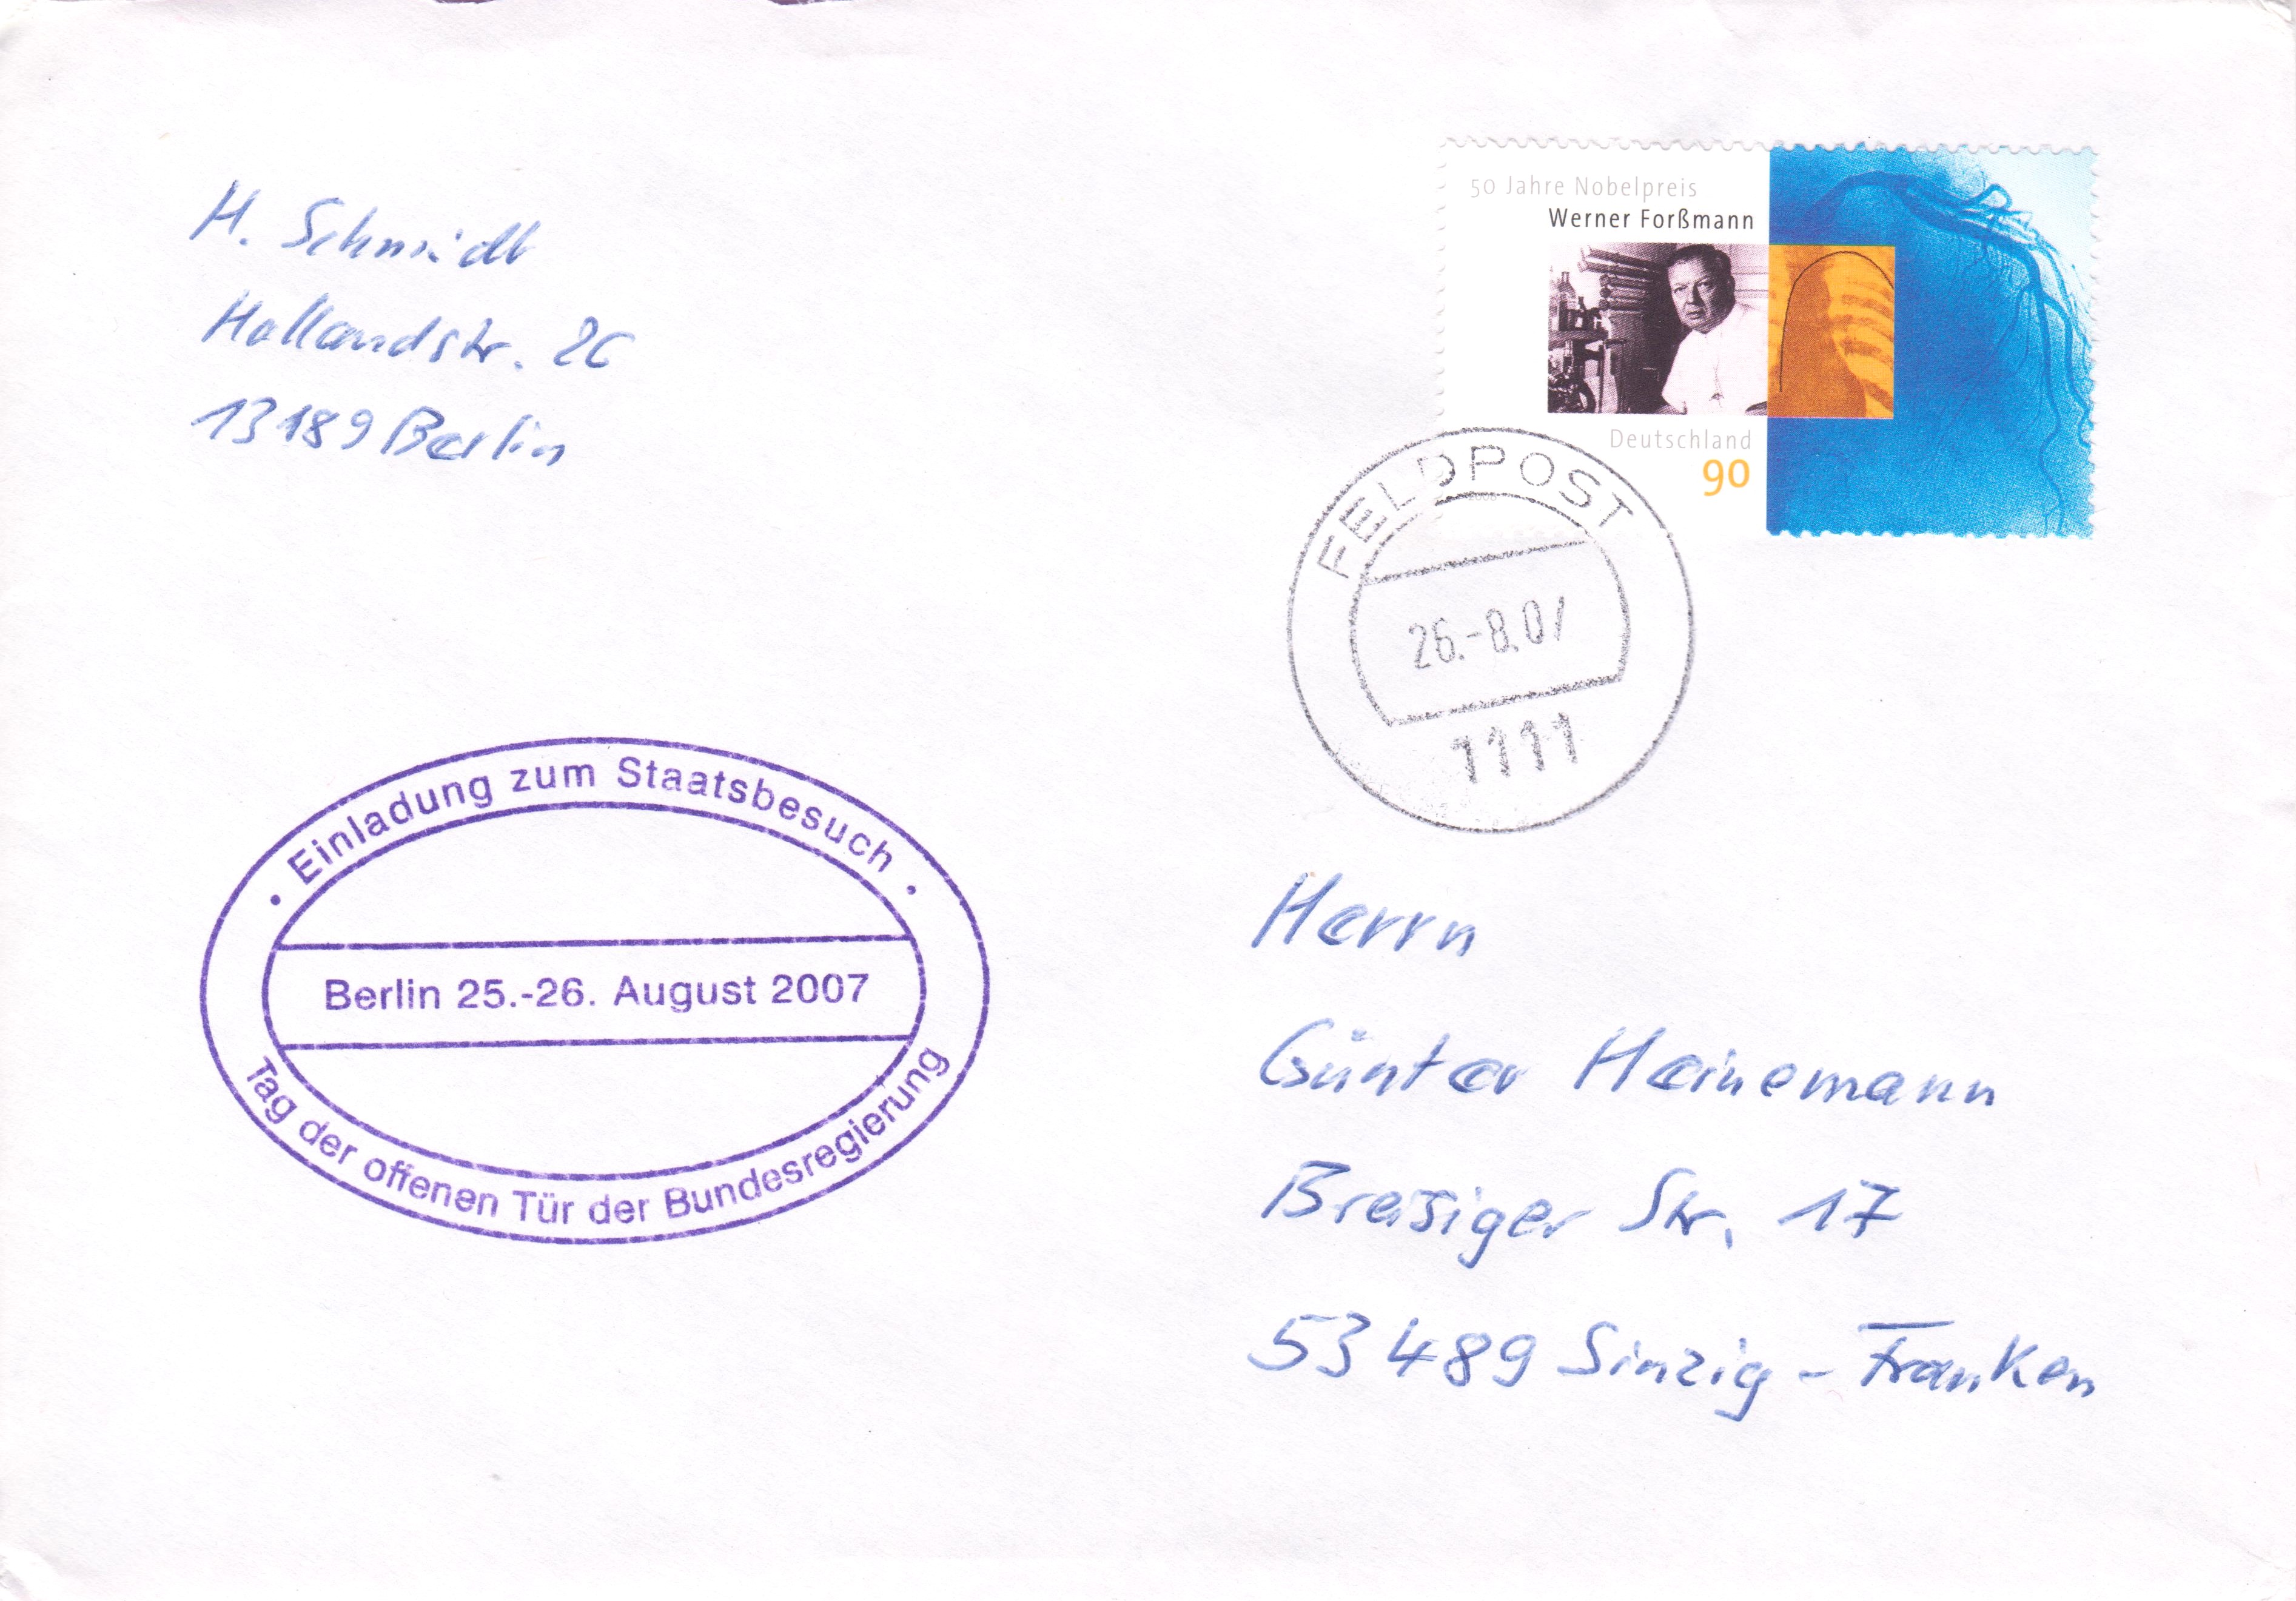 H. Schmidt
Hollandstr. 26
13189 Berlin
50 Jahre Nobelpreis
Werner Forßmann
Deutschland
90
2006
FELDPOST
26.-8.07
1111
· Einladung zum Staatsbesuch ·
Berlin 25.-26. August 2007
Tag der offenen Tür der Bundesregierung
Herrn
Günter Heinemann
Breisiger Str. 17
53489 Sinzig - Franken